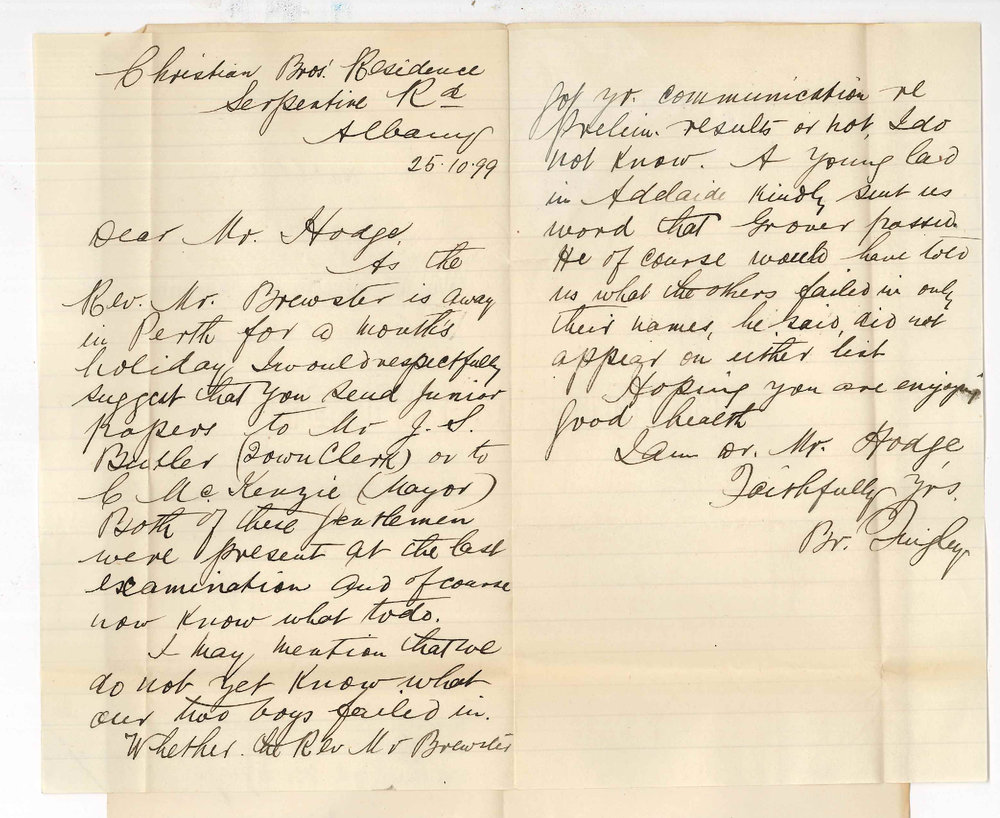 Christian Bros'. Residence
Serpentine Rd
Albany
25.10.99
Dear Mr. Hodge,
As the
Rev. Mr. Brewster is away
in Perth for a month's
holiday, I would respectfully
suggest that you send Junior
Papers to Mr J. S.
Butler (Town Clerk) or to
C McKenzie (Mayor)
Both of these gentlemen
were present at the last
examination and of course
now know what to do.
I may mention that we
do not yet know what
our two boys failed in.
Whether the Rev Mr Brewster
got yr. communication re
prelim. results or not, I do
not know. A young lad
in Adelaide kindly sent us
word that Grover passed.
He of course would have told
us what the others failed in only
their names, he said, did not
appear on either list
Hoping you are enjoying
good health
I am dr. Mr. Hodge,
Faithfully Yrs.
Br. Quigley